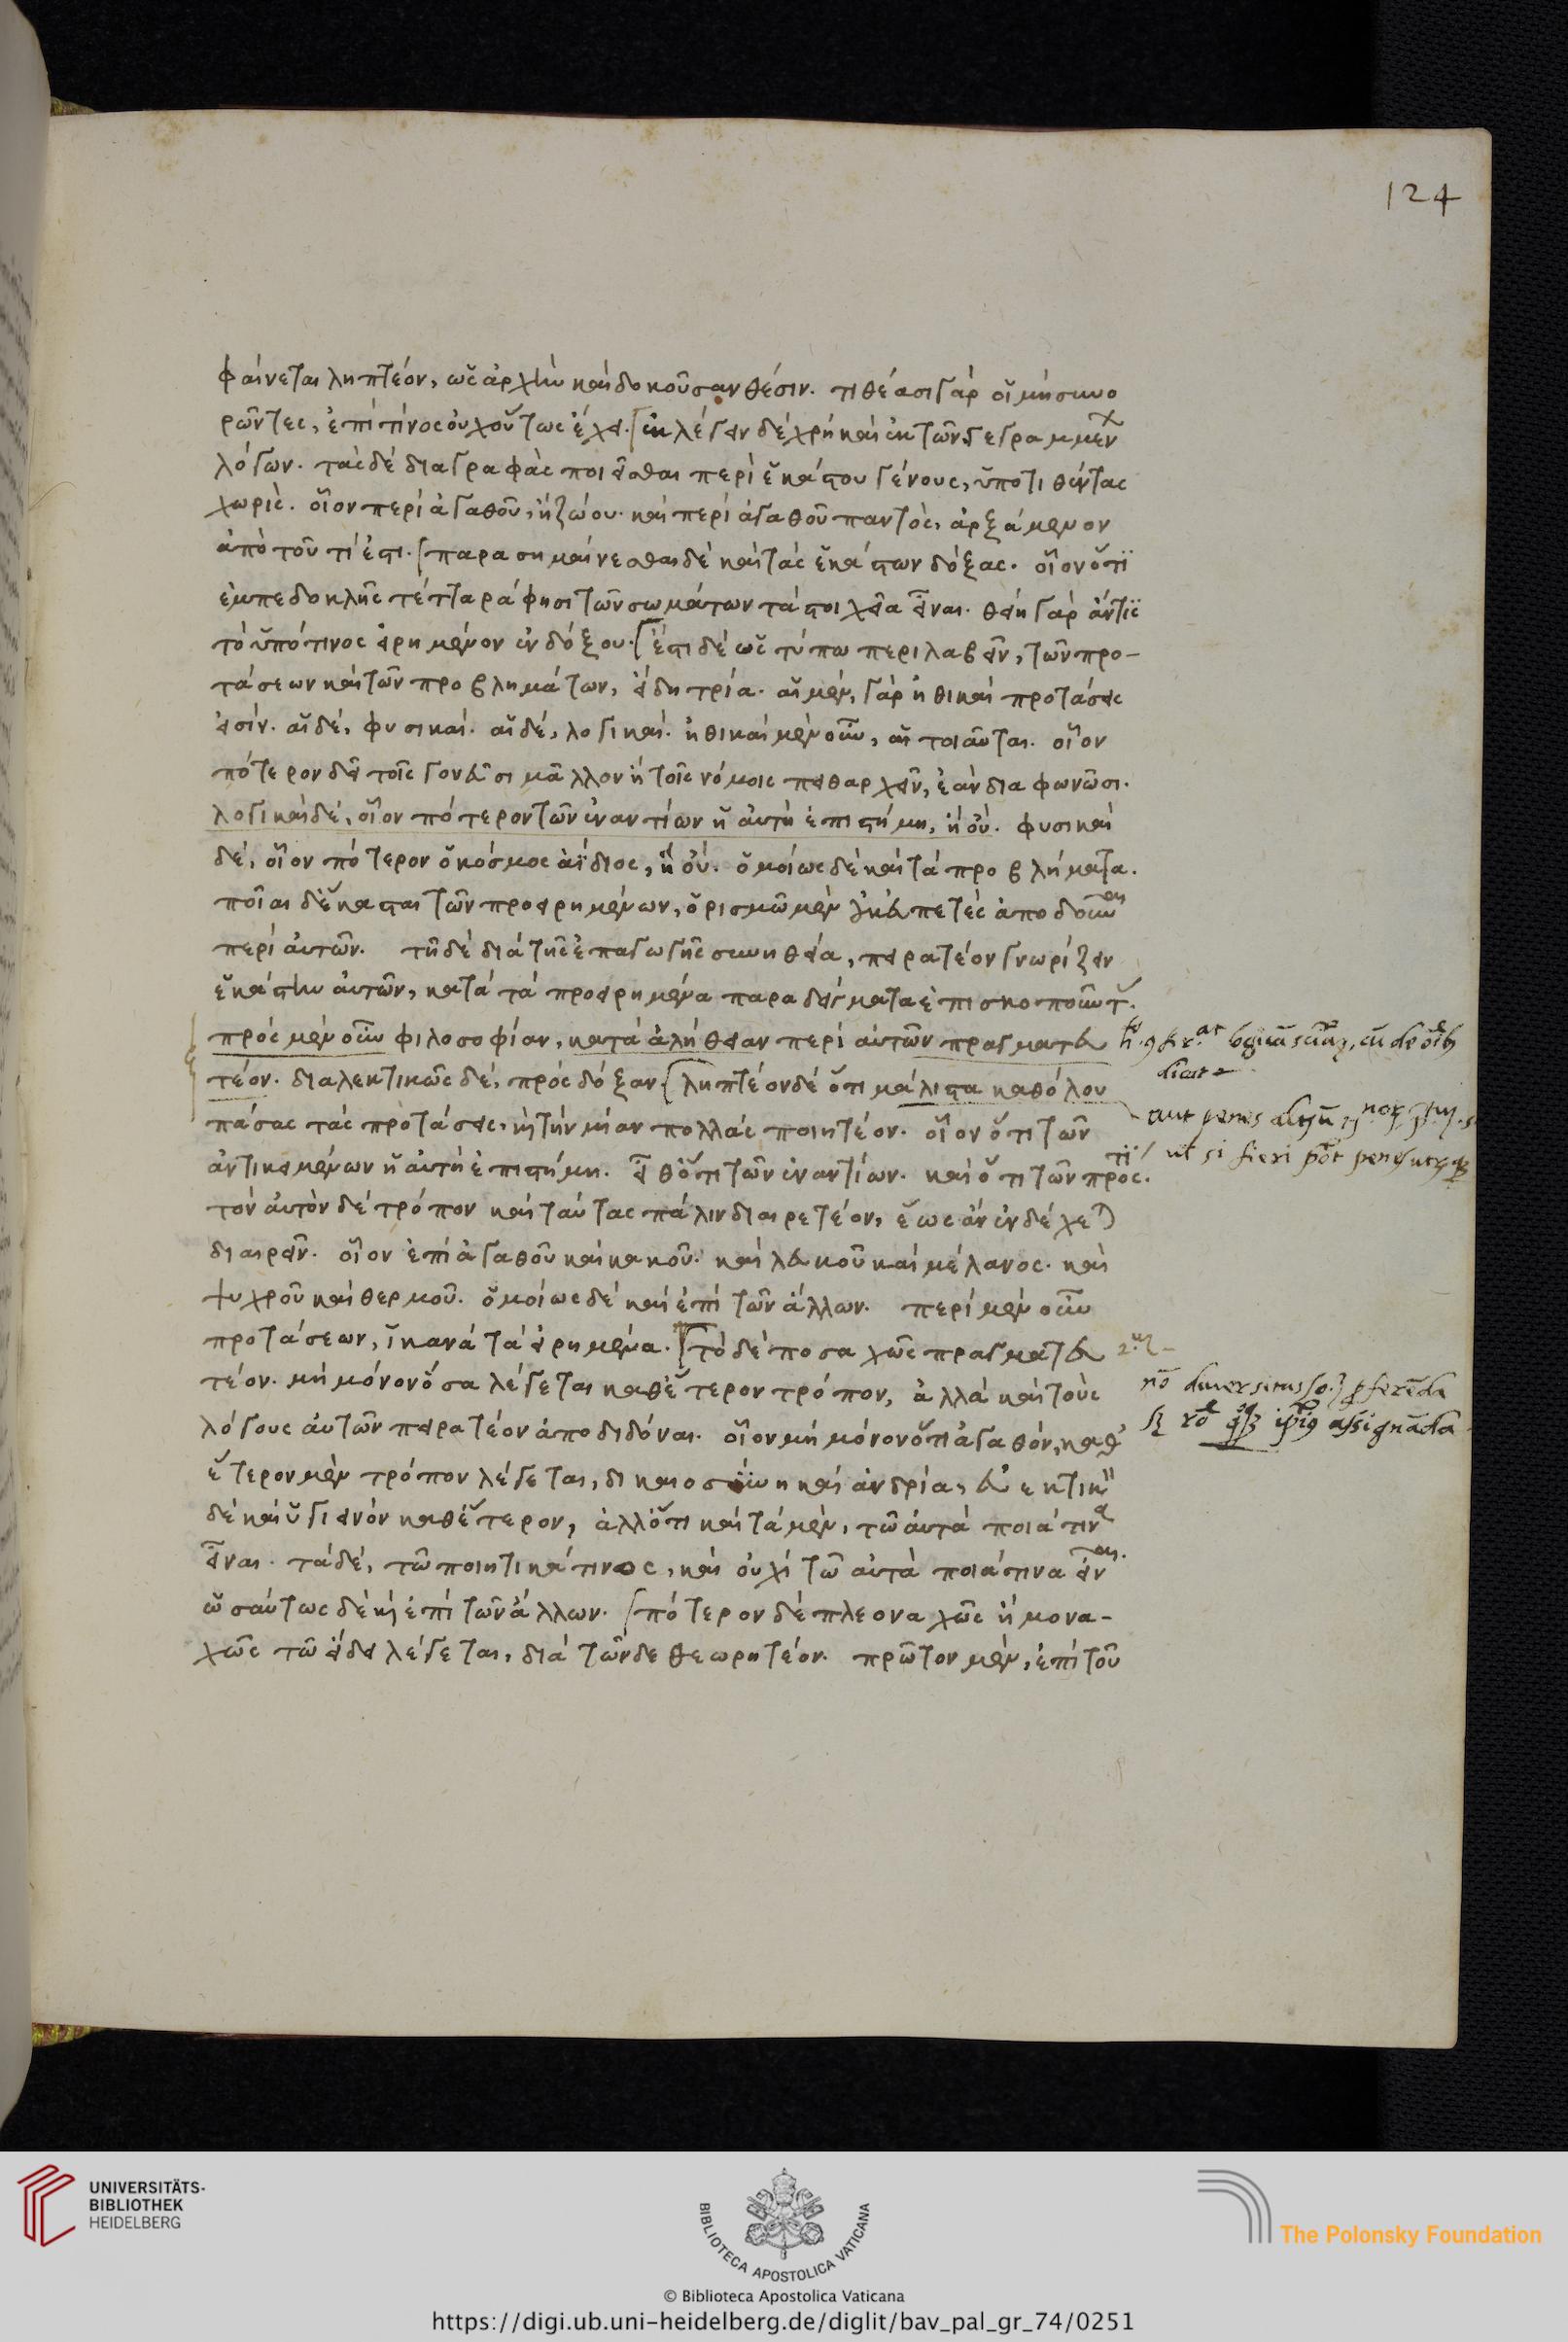 124
φαίνεται ληπτέον, ὡς ἀρχὴν καὶ δοκοῦσαν θέσιν. τιθέασι γὰρ οἱ μὴ συνο
ρῶντες, ἐπί τινος οὐχ οὕτως ἔχει. ἐκλέγειν δὲ χρὴ καὶ ἐκ τῶν γεγραμμέν
λόγων. τὰς δὲ διαγραφὰς ποιεῖσθαι περὶ ἑκάστου γένους, ὑποτιθέντας
χωρίς. οἷον περὶ ἀγαθοῦ, ἢ ζώου. καὶ περὶ ἀγαθοῦ παντὸς, ἀρξάμενον
ἀπὸ τοῦ τί ἐστι. παρασημαίνεσθαι δὲ καὶ τὰς ἑκάστων δόξας. οἷον ὅτι
ἐμπεδοκλῆς τέτταρά φησι τῶν σωμάτων τὰ στοιχεῖα εἶναι. θείη γὰρ ἄν τις
τὸ ὑπό τινος εἰρημένον ἐνδόξου. ἔστι δὲ ὡς τύπω περιλαβεῖν, τῶν προ-
τάσεων καὶ τῶν προβλημάτων, εἴδη τρία. αἱ μὲν, γὰρ ἠθικαὶ προτάσεις
εἰσίν. αἱ δὲ, φυσικαί. αἱ δὲ, λογικαί. ἠθικαὶ μὲν οὖν, αἱ τοιαῦται. οἷον
πότερον δεῖ τοῖς γονεῦσι μᾶλλον ἢ τοῖς νόμοις πειθαρχεῖν, ἐὰν διαφωνῶσι.
λογικαὶ δὲ, οἷον πότερον τῶν ἐναντίων ἡ αὐτὴ ἐπιστήμη, ἢ οὔ. φυσικαὶ
δὲ, οἷον πότερον ὁ κόσμος ἀΐδιος, ἢ οὔ. ὁμοίως δὲ καὶ τὰ προβλήματα.
ποῖαι δ' ἕκασται τῶν προειρημένων, ὁρισμῶ μὲν οὐκ εὐπετὲς ἀποδοῦναι
περὶ αὐτῶν. τῆ δὲ διὰ τῆς ἐπαγωγῆς συνηθεία, πειρατέον γνωρίζειν
ἑκάστην αὐτῶν, κατὰ τὰ προειρημένα παραδείγματα ἐπισκοποῦντ.
πρὸς μὲν οὖν φιλοσοφίαν, κατὰ ἀλήθειαν περὶ αὐτῶν πραγματευ
τέον. διαλεκτικῶς δὲ, πρὸς δόξαν. ληπτέον δὲ ὅτι μάλιστα καθόλου
πάσας τὰς προτάσεις, καὶ τὴν μίαν πολλὰς ποιητέον. οἷον ὅτι τῶν
ἀντικειμένων ἡ αὐτὴ ἐπιστήμη. εἶθ' ὅτι τῶν ἐναντίων. καὶ ὅτι τῶν πρός τι.
τὸν αὐτὸν δὲ τρόπον καὶ ταύτας πάλιν διαιρετέον, ἕως ἂν ἐνδέχεται
διαιρεῖν. οἷον ἐπὶ ἀγαθοῦ καὶ κακοῦ. καὶ λευκοῦ καὶ μέλανος. καὶ
ψυχροῦ καὶ θερμοῦ. ὁμοίως δὲ καὶ ἐπὶ τῶν ἄλλων. περὶ μὲν οὖν
προτάσεων, ἱκανὰ τὰ εἰρημένα. τὸ δὲ ποσαχῶς πραγματευ
τέον. μὴ μόνον ὅσα λέγεται καθ' ἕτερον τρόπον, ἀλλὰ καὶ τοὺς
λόγους αὐτῶν πειρατέον ἀποδιδόναι. οἷον μὴ μόνον ὅτι ἀγαθὸν, καθ'
ἕτερον μὲν τρόπον λέγεται, δικαιοσύνη καὶ ἀνδρία, εὐεκτικὸν
δὲ καὶ ὑγιεινὸν καθ' ἕτερον, ἀλλ' ὅτι καὶ τὰ μὲν, τῶ αὐτὰ ποιά τινα
εἶναι. τὰ δὲ, τῶ ποιητικά τινος, καὶ οὐχὶ τῶ αὐτὰ ποιά τινα εἶναι.
ὡσαύτως δὲ καὶ ἐπὶ τῶν ἄλλων. πότερον δὲ πλεοναχῶς ἢ μονα-
χῶς τῶ εἴδει λέγεται, διὰ τῶνδε θεωρητέον. πρῶτον μὲν, ἐπὶ τοῦ
aut penes
ut si fieri
assignāda
UNIVERSITÄTS-
BIBLIOTHEK
HEIDELBERG
BIBLIOTECA APOSTOLICA VATICANA
The Polonsky Foundation
© Biblioteca Apostolica Vaticana
https://digi.ub.uni-heidelberg.de/diglit/bav_pal_gr_74/0251